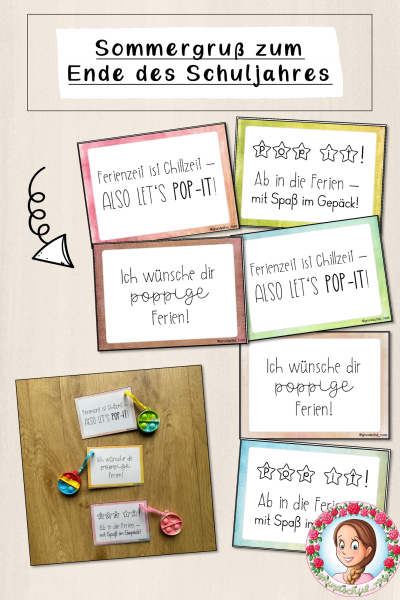 Sommergruß zum
Ende des Schuljahres
Ferienzeit ist Chillzeit –
ALSO LET'S POP-IT!
POP IT!
Ab in die Ferien –
mit Spaß im Gepäck!
Ich wünsche dir
poppige
Ferien!
Ferienzeit ist Chillzeit –
ALSO LET'S POP-IT!
Ich wünsche dir
poppige
Ferien!
POP IT!
Ab in die Ferien –
mit Spaß im
Ferienzeit ist Chillzeit –
ALSO LET'S POP-IT!
Ich wünsche dir
poppige
Ferien!
POP IT!
Ab in die Ferien –
mit Spaß im Gepäck!